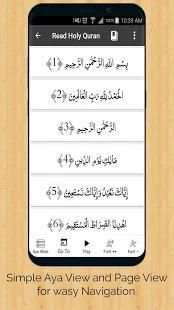 10:38 AM
Read Holy Quran
بِسْمِ اللَّهِ الرَّحْمَٰنِ الرَّحِيمِ ﴿1﴾
الْحَمْدُ لِلَّهِ رَبِّ الْعَالَمِينَ ﴿2﴾
الرَّحْمَٰنِ الرَّحِيمِ ﴿3﴾
مَالِكِ يَوْمِ الدِّينِ ﴿4﴾
إِيَّاكَ نَعْبُدُ وَإِيَّاكَ نَسْتَعِينُ ﴿5﴾
اهْدِنَا الصِّرَاطَ الْمُسْتَقِيمَ ﴿6﴾
Go To Play Font ++ Font --
Simple Aya View and Page View
for wasy Navigation.